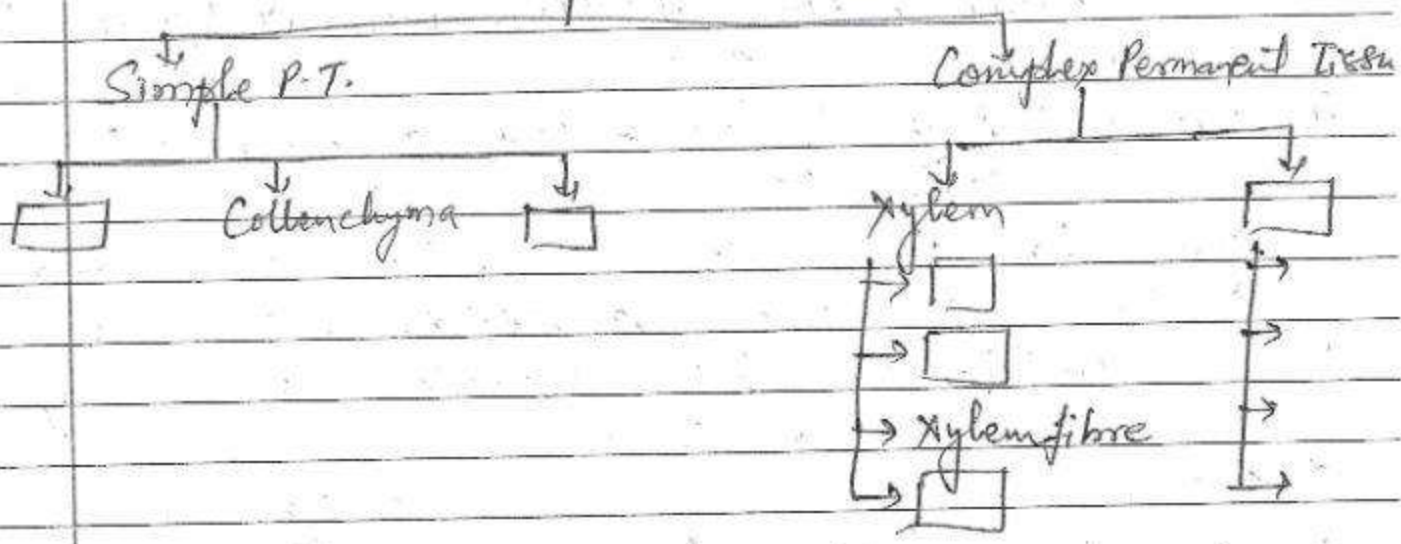 Simple P.T.
Complex Permanent Tissu
Collenchyma
Xylem
Xylem fibre